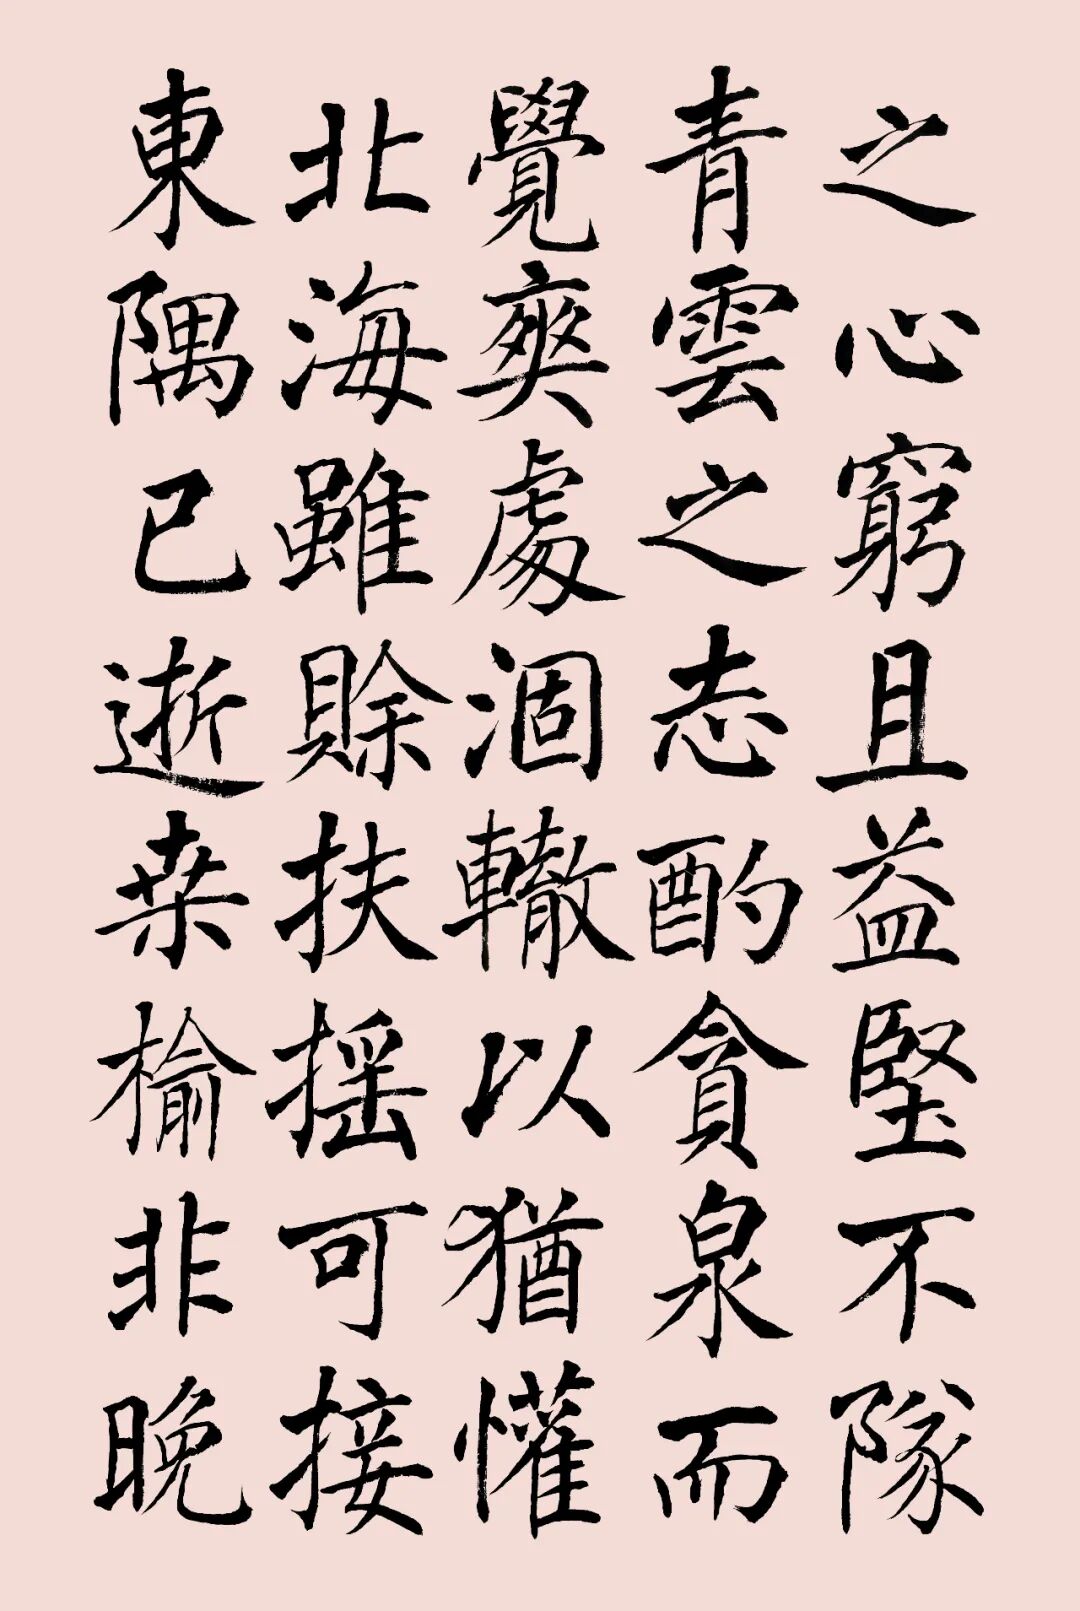 之心窮且益堅不隊
青雲之志酌貪泉而
覺爽處涸轍以猶懽
北海雖賒扶摇可接
東隅已逝桒榆非晚